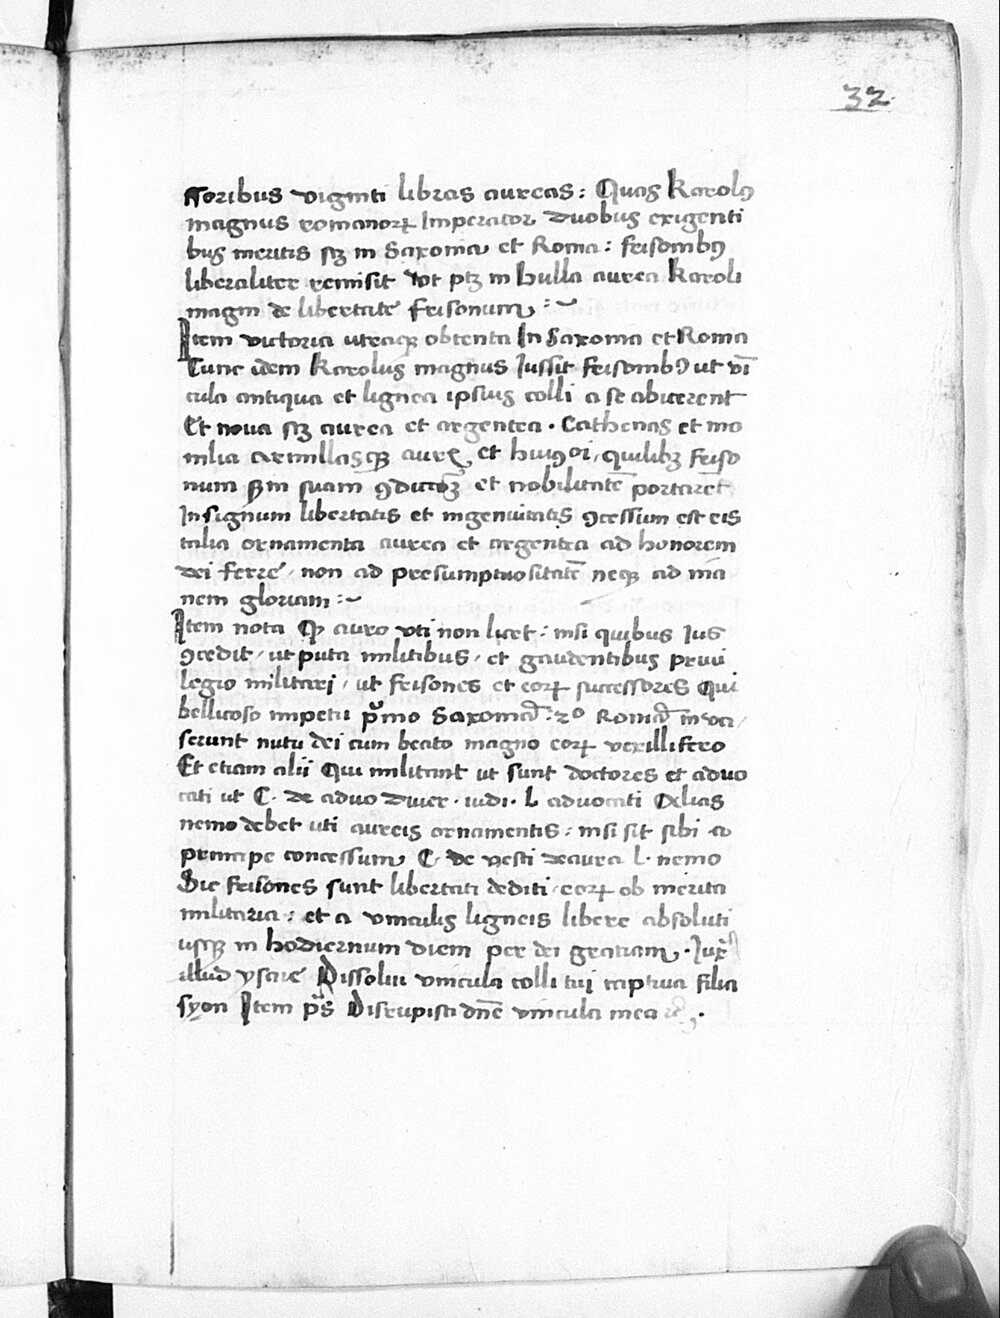 32
ssoribus viginti libras aureas : Quas Karolꝰ
magnus romanorꝝ Imperator duobus exigenti
bus meritis sꝫ in Saxonia et Roma : frisonibꝰ
liberaliter remisit vt ptꝫ in bulla aurea Karoli
magni de libertate frisonum :~
Item victoria utraqꝫ obtenta In Saxonia et Roma
Tunc idem Karolus magnus Jussit frisonibꝰ ut vī
cula antiqua et lignea ipsius colli a se abicerent
Et noua sꝫ aurea et argentea . Cathenas et mo
nilia armillasqꝫ aureꝭ et huiꝰoi , quilibꝫ friso
num scꝺm suam ꝯdicōꝫ et nobilitatē portarēt
In signum libertatis et ingenuitatis ꝯcessum est eis
talia ornamenta aurea et argentea ad honorem
dei ferre , non ad presumptuositatē neqꝫ ad ina
nem gloriam :~
Item nota ꝙ auro vti non licet : nisi quibus Ius
ꝯcedit , ut puta militibus , et gaudentibus priui
legio militari , ut frisones et eorꝝ successores Qui
bellicoso impetu pͥmo Saxoniā : 2º Romā inva
serunt nutu dei cum beato magno eorꝝ vexillifero
Et etiam alii Qui militant ut sunt doctores et aduo
cati ut C. de aduo diuer . iudi . L aduocati Alias
nemo debet uti aureis ornamentis : nisi sit sibi a
principe concessum C. de vesti deaura L. nemo
Sic frisones sunt libertati dediti eorꝝ ob merita
militaria : et a vinculis ligneis libere absoluti
usqꝫ in hodiernum diem per dei gratiam . Juxᵃ
illud ysaie Dissolui vincula colli tui captiua filia
syon Item pˢ Disrupisti dn̄e vincula mea